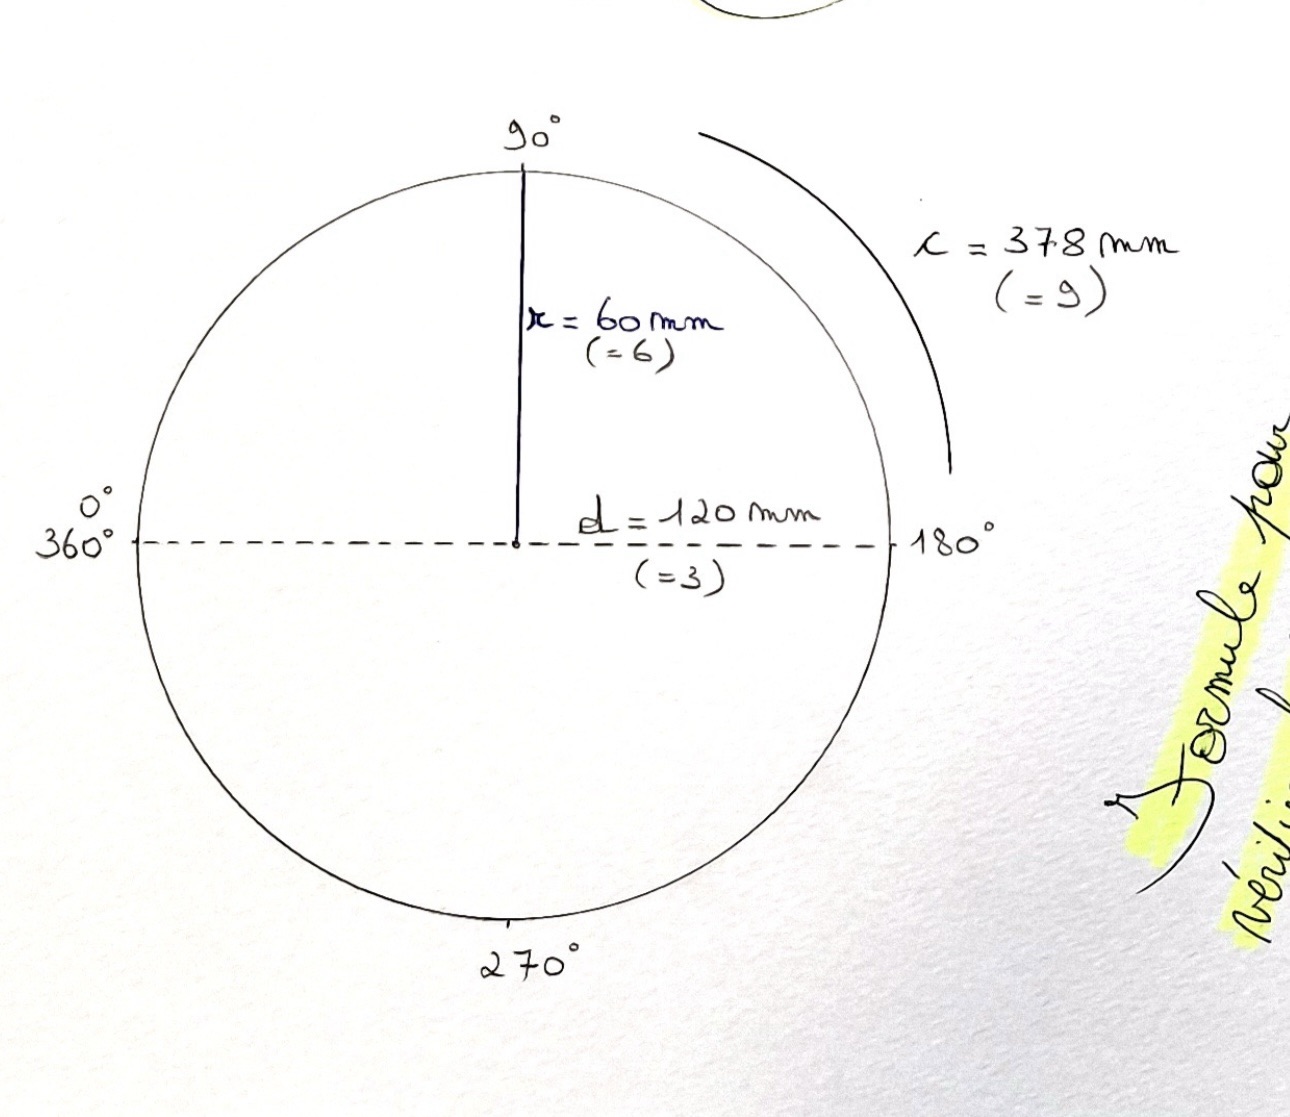 90°
c = 378 mm
(= 9)
r = 60 mm
(= 6)
0°
360°
d = 120 mm
(= 3)
180°
270°
Formule pour